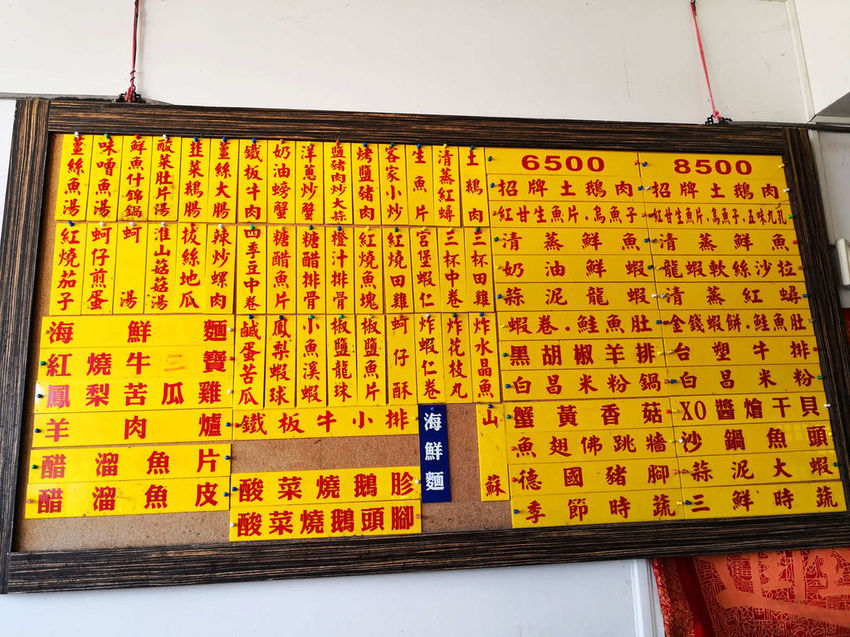 6500
招牌土鵝肉
紅甘生魚片.烏魚子
清蒸鮮魚
奶油鮮蝦
蒜泥龍蝦
蝦卷.鮭魚肚
黑胡椒羊排
白昌米粉鍋
蟹黃香菇
魚翅佛跳牆
德國豬腳
季節時蔬
8500
招牌土鵝肉
紅甘生魚片.烏魚子.五味九孔
清蒸鮮魚
龍蝦軟絲沙拉
清蒸紅蟳
金錢蝦餅.鮭魚肚
台塑牛排
白昌米粉
XO醬燴干貝
沙鍋魚頭
蒜泥大蝦
三鮮時蔬
土鵝肉
清蒸紅蟳
生魚片
客家小炒
烤鹽豬肉
鹽豬肉炒大蒜
洋蔥炒蟹
奶油螃蟹
鐵板牛肉
薑絲大腸
韭菜鵝腸
酸菜肚片湯
鮮魚什錦鍋
味噌魚湯
薑絲魚湯
三杯田雞
三杯中卷
宮堡蝦仁
紅燒田雞
紅燒魚塊
橙汁排骨
糖醋排骨
糖醋魚片
四季豆中卷
辣炒螺肉
拔絲地瓜
淮山菇菇湯
蚵湯
蚵仔煎蛋
紅燒茄子
炸水晶魚
炸花枝丸
炸蝦仁卷
蚵仔酥
椒鹽魚片
椒鹽龍珠
小魚溪蝦
鳳梨蝦球
鹹蛋苦瓜
海鮮麵
紅燒牛三寶
鳳梨苦瓜雞
羊肉爐
醋溜魚片
醋溜魚皮
鐵板牛小排
酸菜燒鵝胗
酸菜燒鵝頭腳
海鮮麵
山蘇